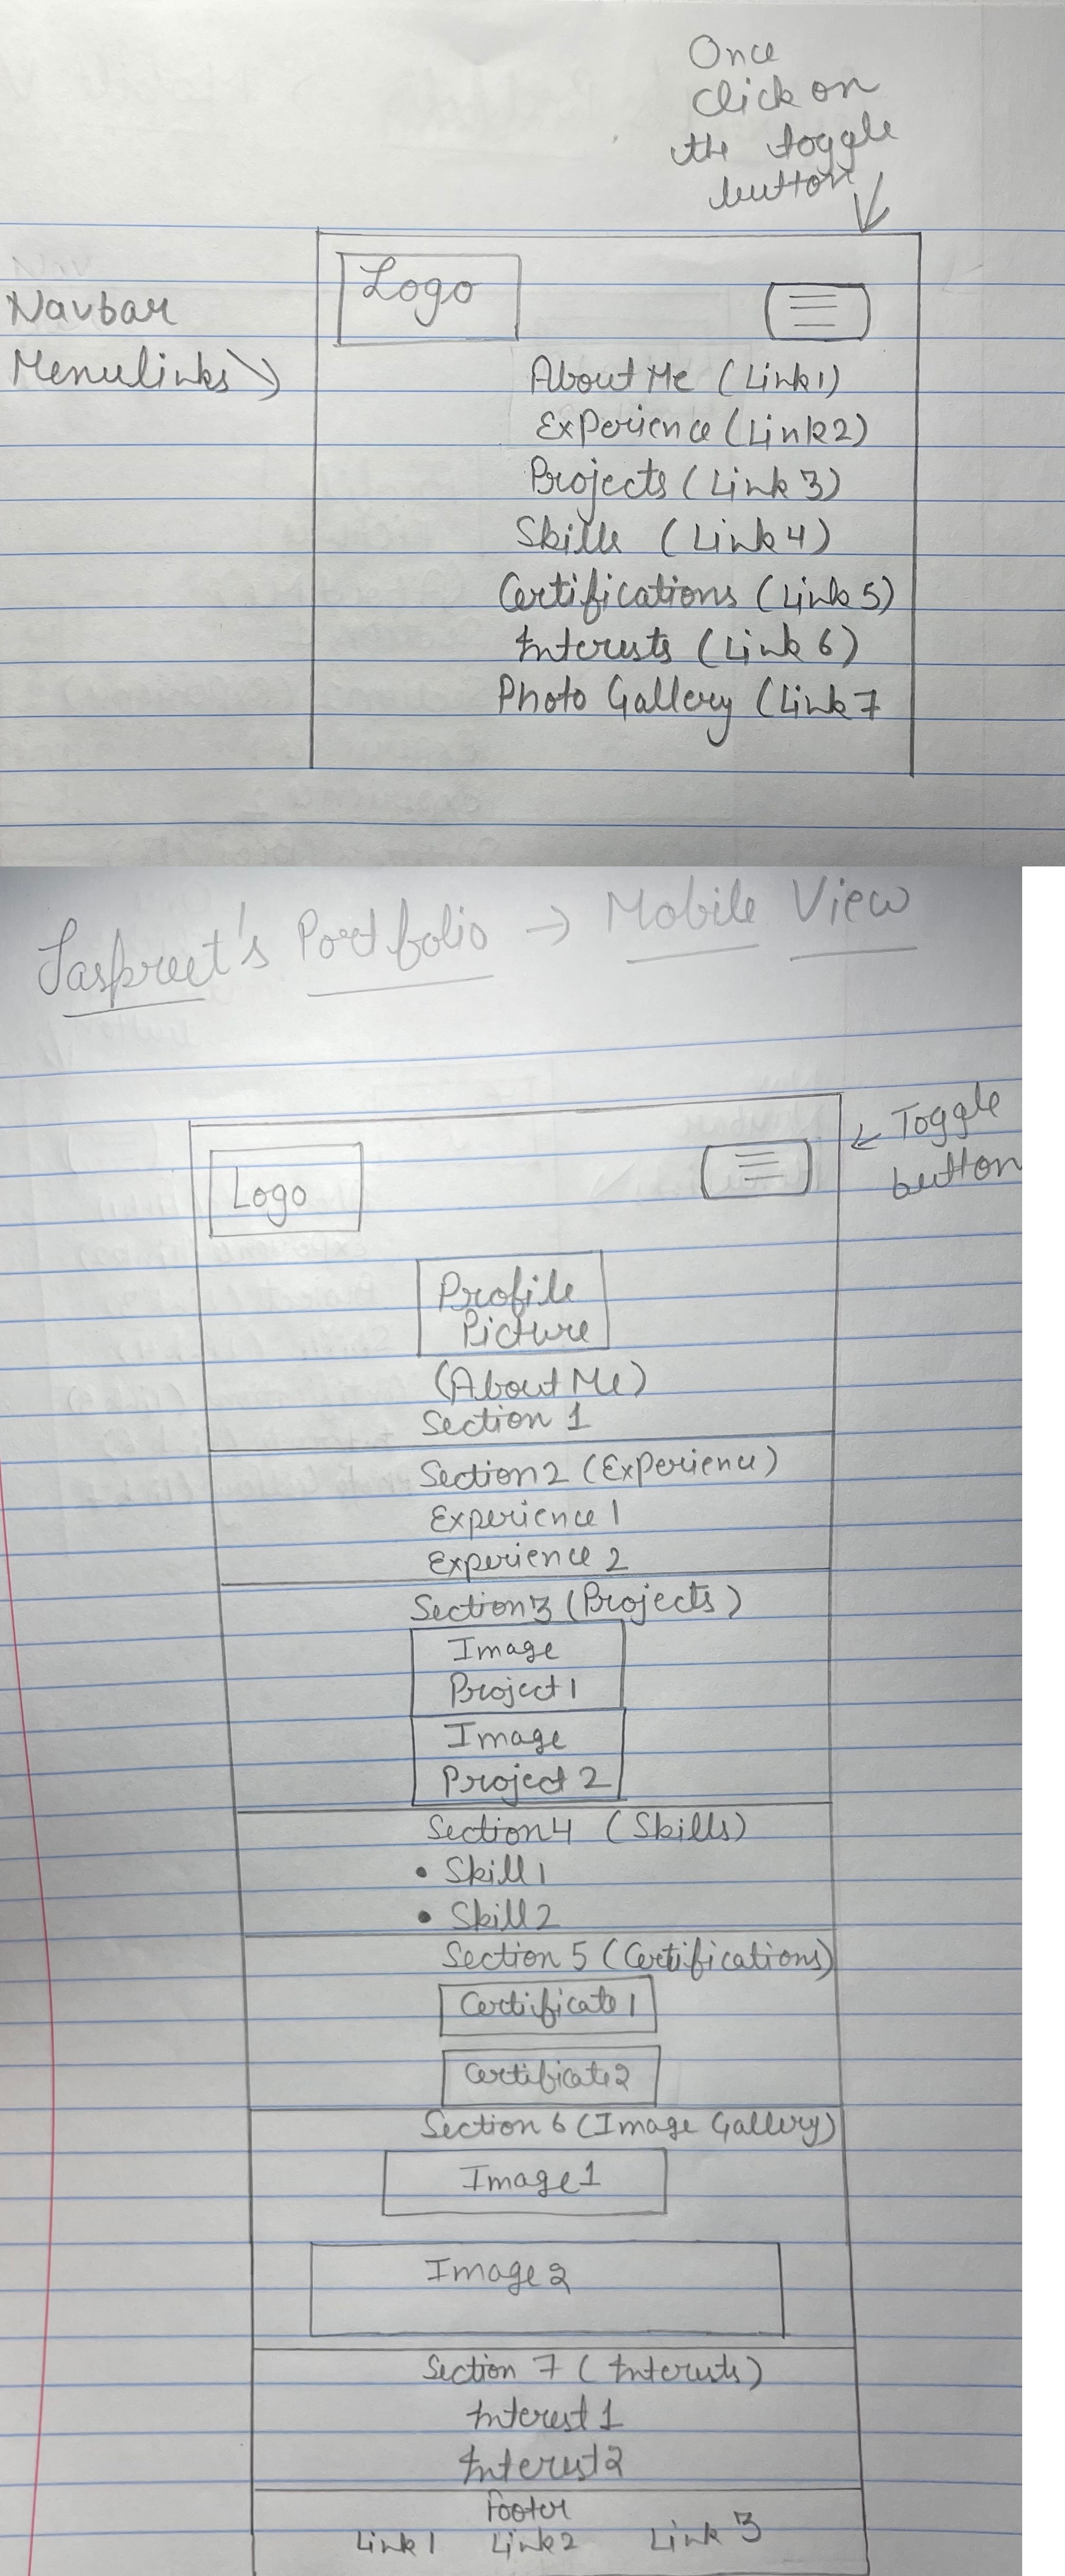 Once
Click on
the toggle
button
Logo
Navbar
Menulinks
About Me (Link1)
Experience (Link2)
Projects (Link 3)
Skills (Link 4)
Certifications (Link 5)
Interests (Link 6)
Photo Gallery (Link 7
Jaspreet's Portfolio → Mobile View
Toggle
button
Logo
Profile
Picture
(About Me)
Section 1
Section2 (Experience)
Experience 1
Experience 2
Section3 (Projects)
Image
Project1
Image
Project 2
Section4 (Skills)
• Skill1
• Skill2
Section 5 (Certifications)
Certificate1
Certificate2
Section 6 (Image Gallery)
Image1
Image2
Section 7 (Interests)
Interest 1
Interest2
Footer
Link1 Link2 Link 3